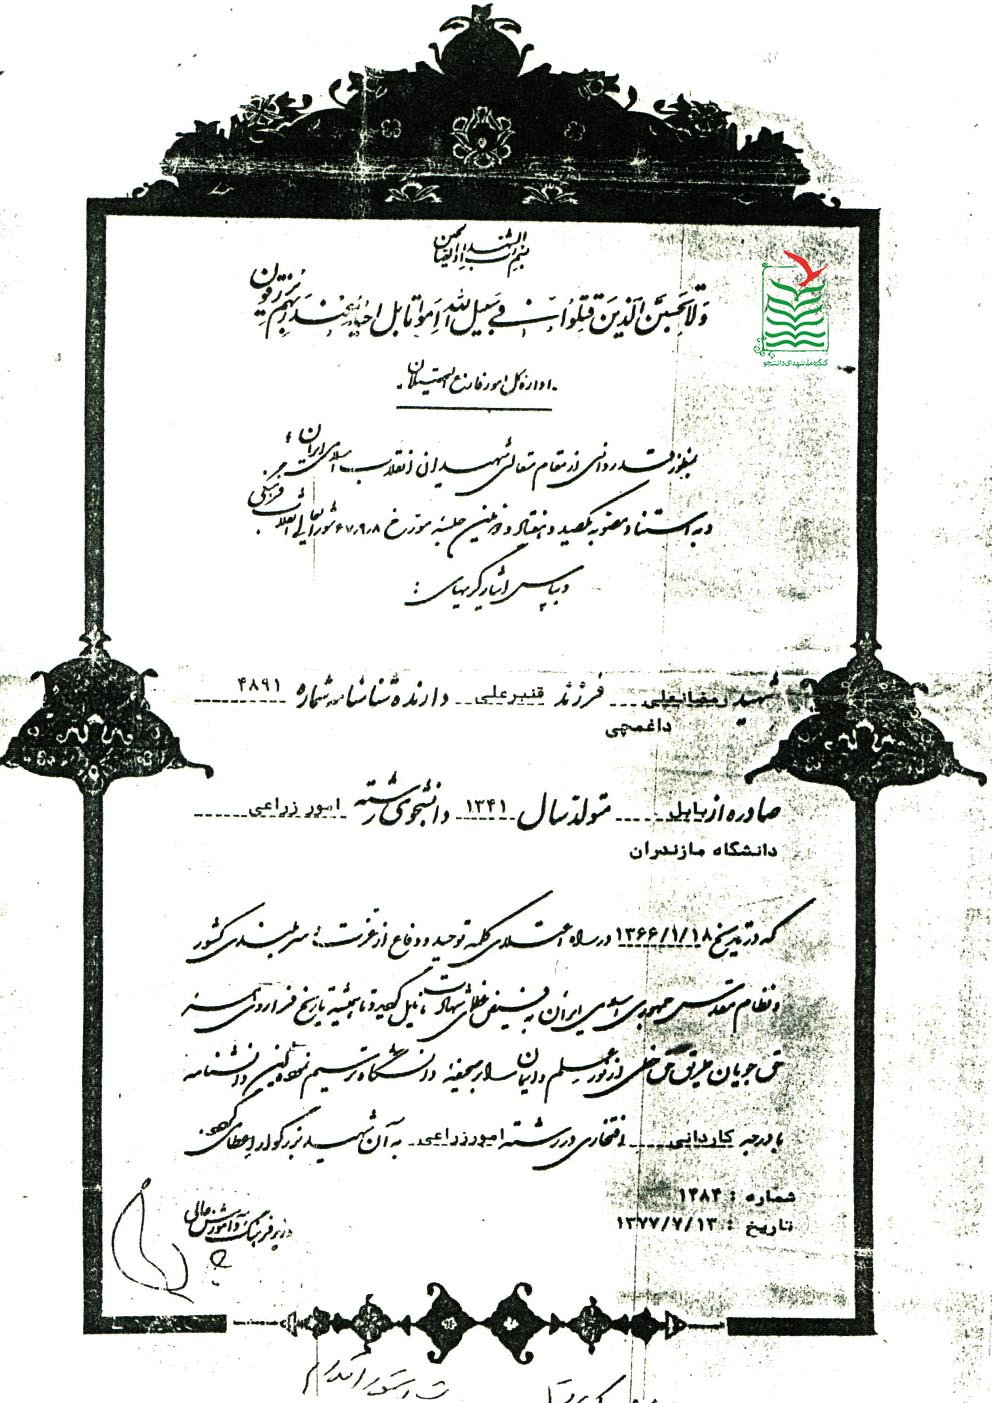 بسم رب الشهداء و الصدیقین
وَلا تَحسَبَنَّ الَّذینَ قُتِلوُا فی سَبیلِ اللهِ اَمواتا بَل احیاءٌ عِندَ رَبِّهِم یُرزَقون
کنگره ملی شهدای دانشجو
اداره کل امور فارغ التحصیلان
بمنظور قدردانی از مقام متعالی شهیدان انقلاب اسلامی ایران ؛
و به استناد مصوبه یکصد و هفتاد و دومین جلسه مورخ ۶۷٫۹٫۸ شورایعالی انقلاب فرهنگی
و بپاس ایثارگریهای :
شهید رمضانعلی فرزند قنبرعلی دارنده شناسنامه شماره ۴۸۹۱
داغمچی
صادره از بابل متولد سال ۱۳۴۱ دانشجوی رشته امور زراعی
دانشگاه مازندران
که در تاریخ ۱۳۶۶/۱/۱۸ در راه اعتلای کلمه توحید و دفاع از عزت و سربلندی کشور
و نظام مقدس جمهوری اسلامی ایران به فیض عظمای شهادت نایل گردیده تا همیشه تاریخ فراروی
حق جویان طریق حق خطی از نور علم و ایمان را بر صحیفه دانشگاه ترسیم نموده این دانشنامه
با درجه کاردانی افتخاری در رشته امور زراعی به آن شهید بزرگوار اعطا می گردد.
شماره : ۱۴۸۴
تاریخ : ۱۳۷۷/۷/۱۳
وزیر فرهنگ و آموزش عالی